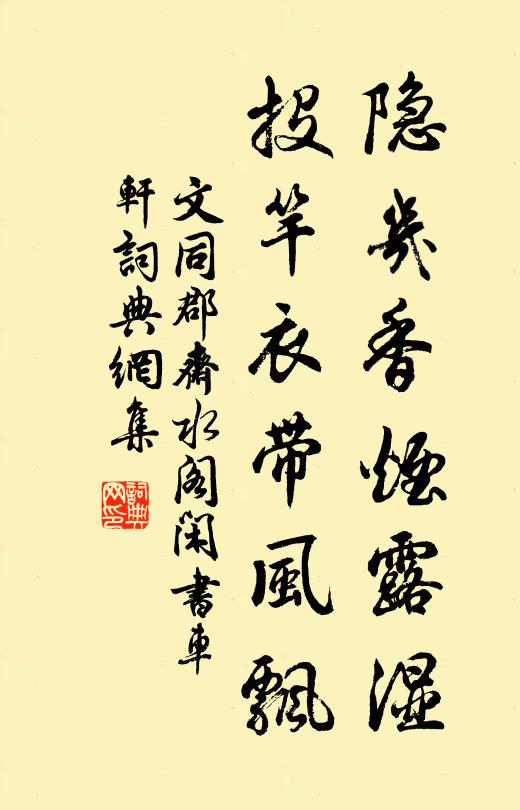 隐几香烟露湿
投竿衣带風飘
文同郡齋水阁闲書車
軒詞典網集
詞典
网印